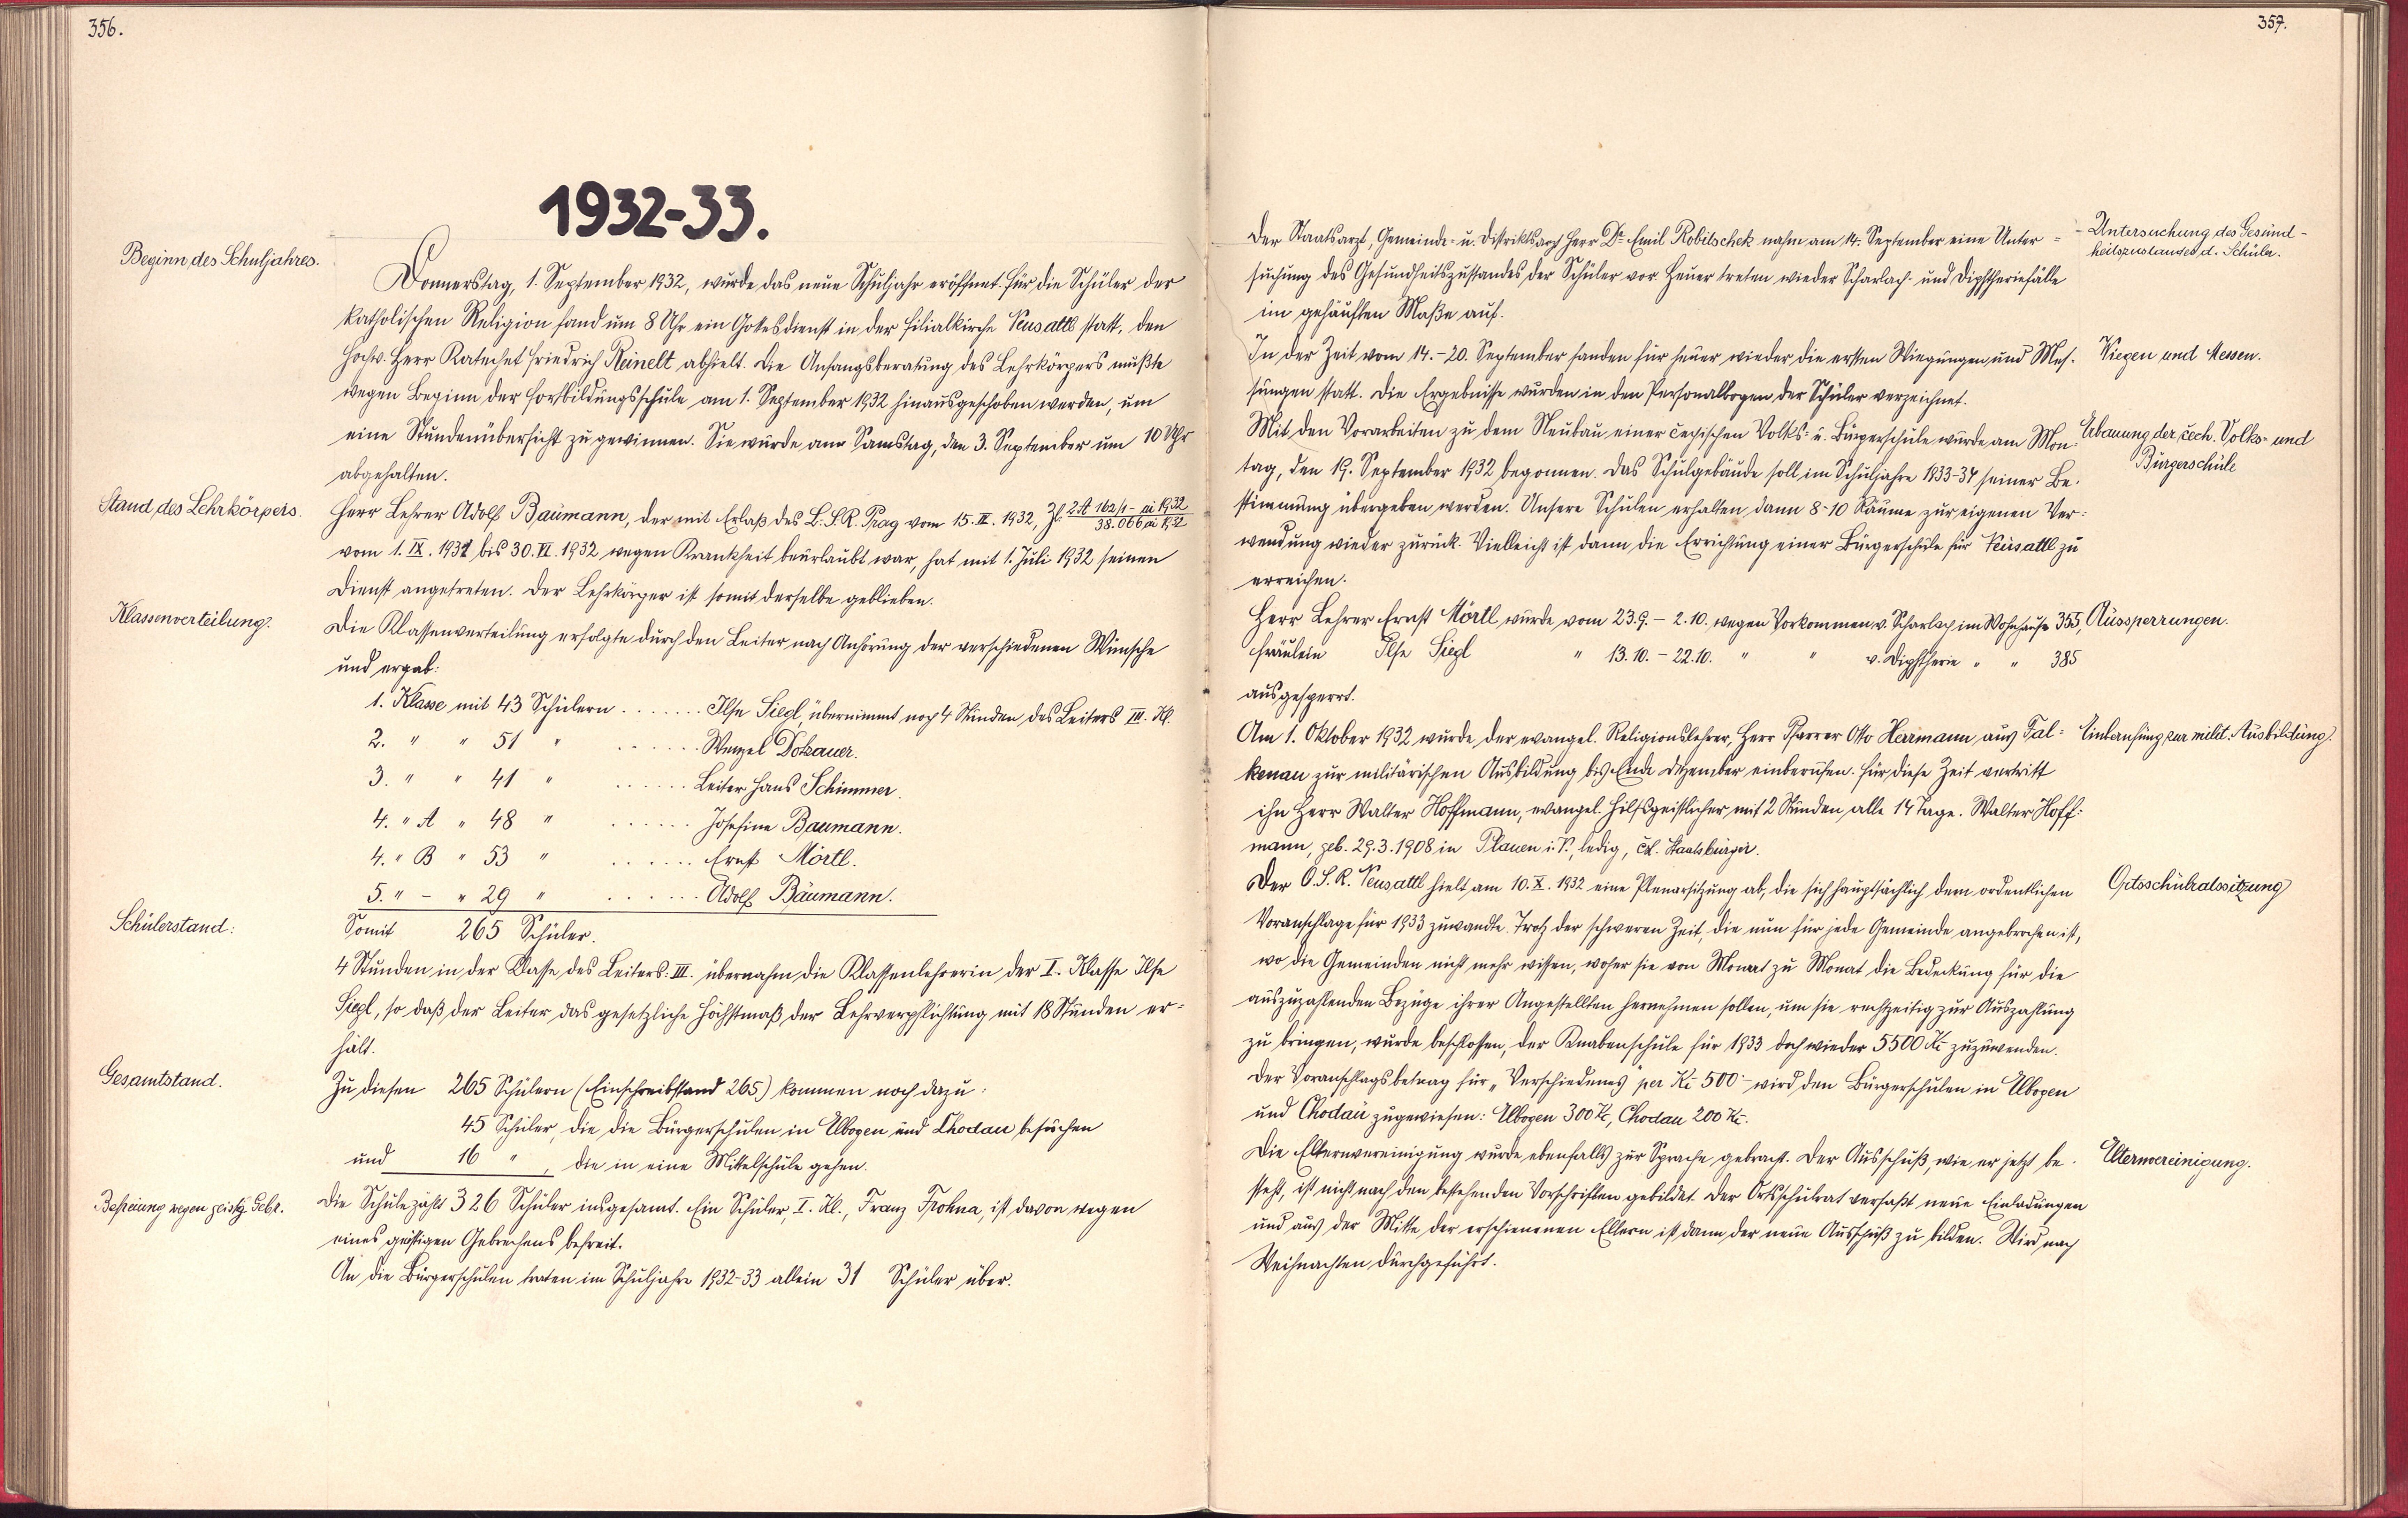 356.
1932-33.
Beginn des Schuljahres.
Donnerstag, 1. September 1932, wurde das neue Schuljahr eröffnet. Für die Schüler der
katholischen Religion fand um 8 Uhr ein Gottesdienst in der Filialkirche Neusattl statt, den
Hochw. Herr Katechet Friedrich Reinelt abhielt. Die Anfangsberatung des Lehrkörpers mußte
wegen Beginn der Fortbildungsschule am 1. September 1932 hinausgeschoben werden, um
eine Stundenübersicht zu gewinnen. Sie wurde am Samstag, den 3. September um 10 Uhr
abgehalten.
Stand des Lehrkörpers.
Herr Lehrer Adolf Baumann, der mit Erlaß des L.S.R. Prag vom 15. II. 1932, Zl. 2A 162/1 - ai 1932
38.066 ai 1932
vom 1. IX. 1931 bis 30. VI. 1932 wegen Krankheit beurlaubt war, hat mit 1. Juli 1932 seinen
Dienst angetreten. Der Lehrkörper ist somit derselbe geblieben.
Klassenverteilung.
Die Klassenverteilung erfolgte durch den Leiter nach Anhörung der verschiedenen Wünsche
und ergab:
1. Klasse mit 43 Schülern ....... Ilse Siegl, übernimmt noch 4 Stunden des Leiters III. Kl.
2. " " 51 " ...... Wenzel Dotzauer.
3. " " 41 " ...... Leiter Hans Schimmer.
4. " A " 48 " ...... Josefine Baumann.
4. " B " 53 " ...... Ernst Mörtl.
5. " - " 29 " ...... Adolf Baumann.
Schülerstand:
Somit 265 Schüler.
4 Stunden in der Klasse des Leiters: III. übernahm die Klassenlehrerin der I. Klasse Ilse
Siegl, so daß der Leiter das gesetzliche Höchstmaß der Lehrverpflichtung mit 18 Stunden er=
hält.
Gesamtstand.
Zu diesen 265 Schülern (Einschreibstand 265) kommen noch dazu:
45 Schüler, die die Bürgerschulen in Elbogen und Chodau besuchen
und 16 " , die in eine Mittelschule gehen.
Befreiung wegen geistig. Gebr.
Die Schule zählt 326 Schüler insgesamt. Ein Schüler, I. Kl., Franz Frohna, ist davon wegen
eines geistigen Gebrechens befreit.
An die Bürgerschulen traten im Schuljahre 1932-33 allein 31 Schüler über.
357.
Der Staatsarzt, Gemeinde- u. Distriktsarzt Herr Dr. Emil Robitschek nahm am 14. September eine Unter=
suchung des Gesundheitszustandes der Schüler vor. Heuer treten wieder Scharlach- und Diphtheriefälle
im gehäuften Maße auf.
Untersuchung des Gesund-
heitszustandes d. Schüler.
In der Zeit vom 14.-20. September fanden für heuer wieder die ersten Wiegungen und Mes-
sungen statt. Die Ergebnisse wurden in den Personalbogen der Schüler verzeichnet.
Wiegen und Messen.
Mit den Vorarbeiten zu dem Neubau einer čechischen Volks- u. Bürgerschule wurde am Mon-
tag, den 19. September 1932 begonnen. Das Schulgebäude soll im Schuljahre 1933-34 seiner Be-
stimmung übergeben werden. Unsere Schulen erhalten dann 8-10 Räume zur eigenen Ver-
wendung wieder zurück. Vielleicht ist dann die Errichtung einer Bürgerschule für Neusattl zu
erreichen.
Erbauung der čech. Volks- und
Bürgerschule
Herr Lehrer Ernst Mörtl wurde vom 23.9. - 2.10. wegen Vorkommen v. Scharlach im Wohnhause 355,
Fräulein Ilse Siegl " 13.10. - 22.10. " " v. Diphtherie " " 385
ausgesperrt.
Aussperrungen.
Am 1. Oktober 1932 wurde der evangel. Religionslehrer, Herr Pfarrer Otto Herrmann aus Fal=
kenau zur militärischen Ausbildung bis Ende Dezember einberufen. Für diese Zeit vertritt
ihn Herr Walter Hoffmann, evangel. Hilfsgeistlicher mit 2 Stunden, alle 14 Tage. Walter Hoff=
mann, geb. 29.3.1908 in Plauen i. V., ledig, čsl. Staatsbürger.
Einberufung zur milit. Ausbildung.
Der O.S.R. Neusattl hielt am 10. X. 1932 eine Plenarsitzung ab, die sich hauptsächlich dem ordentlichen
Voranschlage für 1933 zuwandte. Trotz der schweren Zeit, die nun für jede Gemeinde angebrochen ist,
wo die Gemeinden nicht mehr wissen, woher sie von Monat zu Monat die Bedeckung für die
auszuzahlenden Bezüge ihrer Angestellten hernehmen sollen, um sie rechtzeitig zur Auszahlung
zu bringen, wurde beschlossen, der Knabenschule für 1933 doch wieder 5500 Kč zuzuwenden.
Der Voranschlagsbetrag für „Verschiedenes" per Kč 500·- wird den Bürgerschulen in Elbogen
und Chodau zugewiesen: Elbogen 300 Kč, Chodau 200 Kč.
Ortsschulratssitzung
Die Elternvereinigung wurde ebenfalls zur Sprache gebracht. Der Ausschuß, wie er jetzt be-
steht, ist nicht nach den bestehenden Vorschriften gebildet. Der Ortsschulrat verfaßt neue Einladungen
und aus der Mitte der erschienenen Eltern ist dann der neue Ausschuß zu bilden. Wird nach
Weihnachten durchgeführt.
Elternvereinigung.